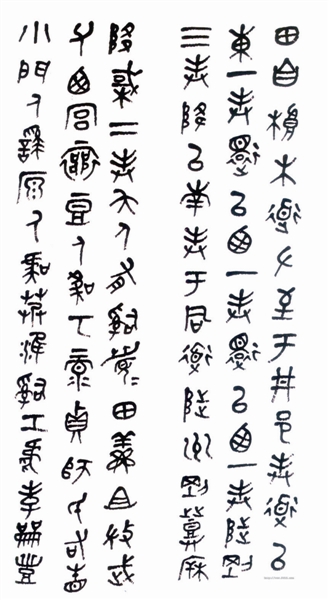 田自桹木道左至于井邑封道以
東一封還以西一封還以西一封陟剛
三封降以南封于同道陟州剛登𣏟
降棫二封夨人有司眉田鮮且微武
父西宮襄豆人虞丂彔貞師氏右眚
小門人繇原人虞艿淮司工虎孝𠕋豐